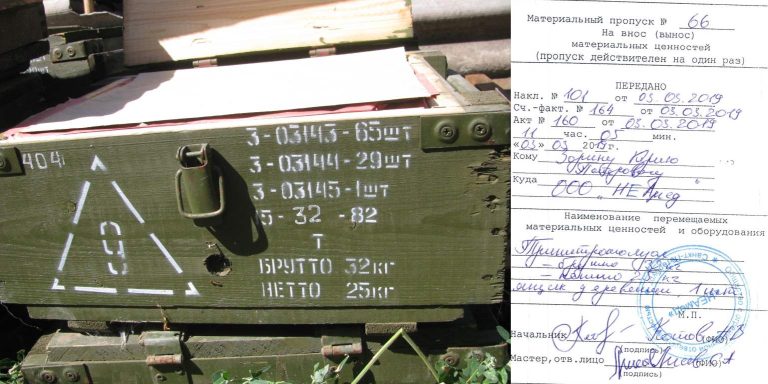 404
9
3-03143-65шт
3-03144-29шт
3-03145-1шт
5-32-82
Т
БРУТТО 32кг
НЕТТО 25кг
Материальный пропуск № 66
На внос (вынос)
материальных ценностей
(пропуск действителен на один раз)
ПЕРЕДАНО
Накл. № 101 от 03.03.2019
Сч.-факт. № 164 от 03.03.2019
Акт № 160 от 03.03.2019
11 час. 05 мин.
«03» 03 2019г.
Кому Зорину Юрию
Куда ООО
Наименование перемещаемых
материальных ценностей и оборудования
Тринитротолуол
- брутто кг
кг
ящик деревянный 1 шт
М.П.
Начальник (ФИО)
(подпись)
Мастер,отв.лицо (ФИО)
(подпись)